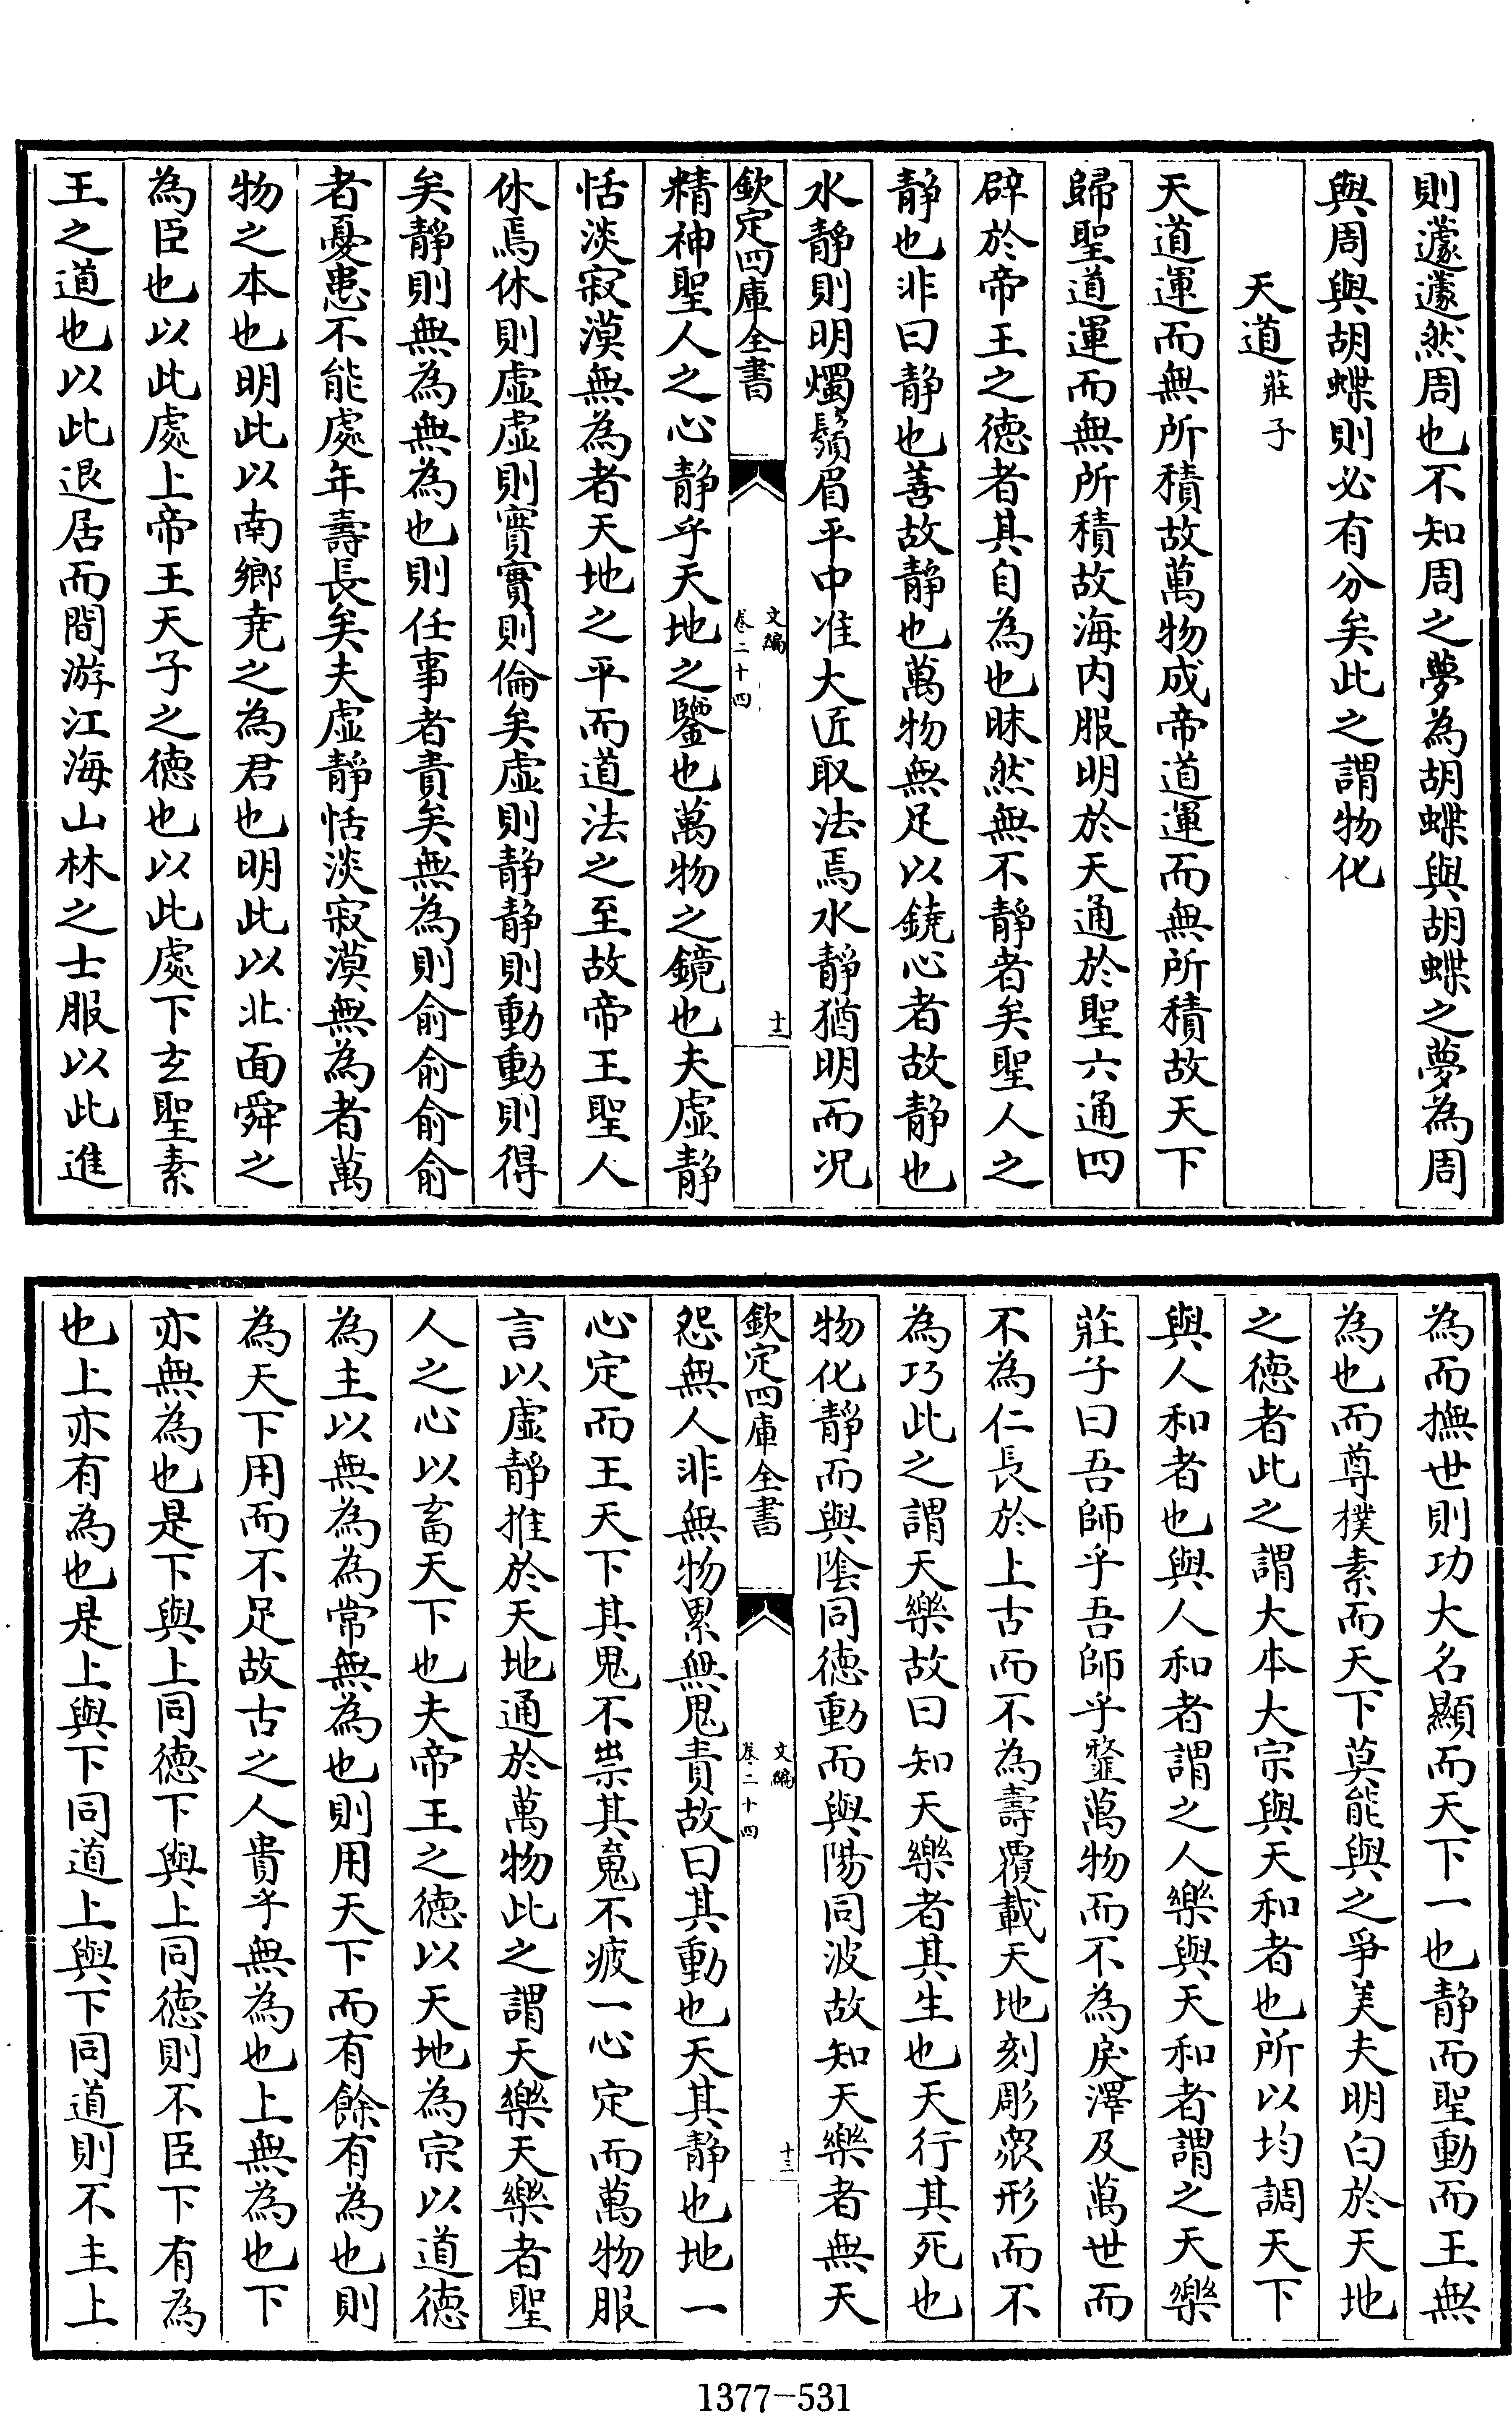 則蘧蘧然周也不知周之夢為胡蝶與胡蝶之夢為周
與周與胡蝶則必有分矣此之謂物化
天道莊子
天道運而無所積故萬物成帝道運而無所積故天下
歸聖道運而無所積故海内服明於天通於聖六通四
辟於帝王之德者其自為也昧然無不靜者矣聖人之
静也非曰静也善故静也萬物無足以鐃心者故静也
水靜則明燭鬚眉平中准大匠取法焉水靜猶明而况
欽定四庫全書
文編
卷二十四
十二
精神聖人之心静乎天地之鑒也萬物之鏡也夫虚静
恬淡寂漠無為者天地之平而道法之至故帝王聖人
休焉休則虚虚則實實則倫矣虚則静静則動動則得
矣靜則無為無為也則任事者責矣無為則俞俞俞俞
者憂患不能處年壽長矣夫虚靜恬淡寂漠無為者萬
物之本也明此以南鄉堯之為君也明此以北面舜之
為臣也以此處上帝王天子之德也以此處下玄聖素
王之道也以此退居而間游江海山林之士服以此進
為而撫世則功大名顯而天下一也静而聖動而王無
為也而尊樸素而天下莫能與之爭美夫明白於天地
之德者此之謂大本大宗與天和者也所以均調天下
與人和者也與人和者謂之人樂與天和者謂之天樂
莊子曰吾師乎吾師乎𩐋萬物而不為戾澤及萬世而
不為仁長於上古而不為壽覆載天地刻彫衆形而不
為巧此之謂天樂故曰知天樂者其生也天行其死也
物化靜而與陰同德動而與陽同波故知天樂者無天
欽定四庫全書
文編
卷二十四
十三
怨無人非無物累無鬼責故曰其動也天其静也地一
心定而王天下其鬼不祟其䰟不疲一心定而萬物服
言以虚靜推於天地通於萬物此之謂天樂天樂者聖
人之心以畜天下也夫帝王之德以天地為宗以道德
為主以無為為常無為也則用天下而有餘有為也則
為天下用而不足故古之人貴乎無為也上無為也下
亦無為也是下與上同德下與上同德則不臣下有為
也上亦有為也是上與下同道上與下同道則不主上
1377-531